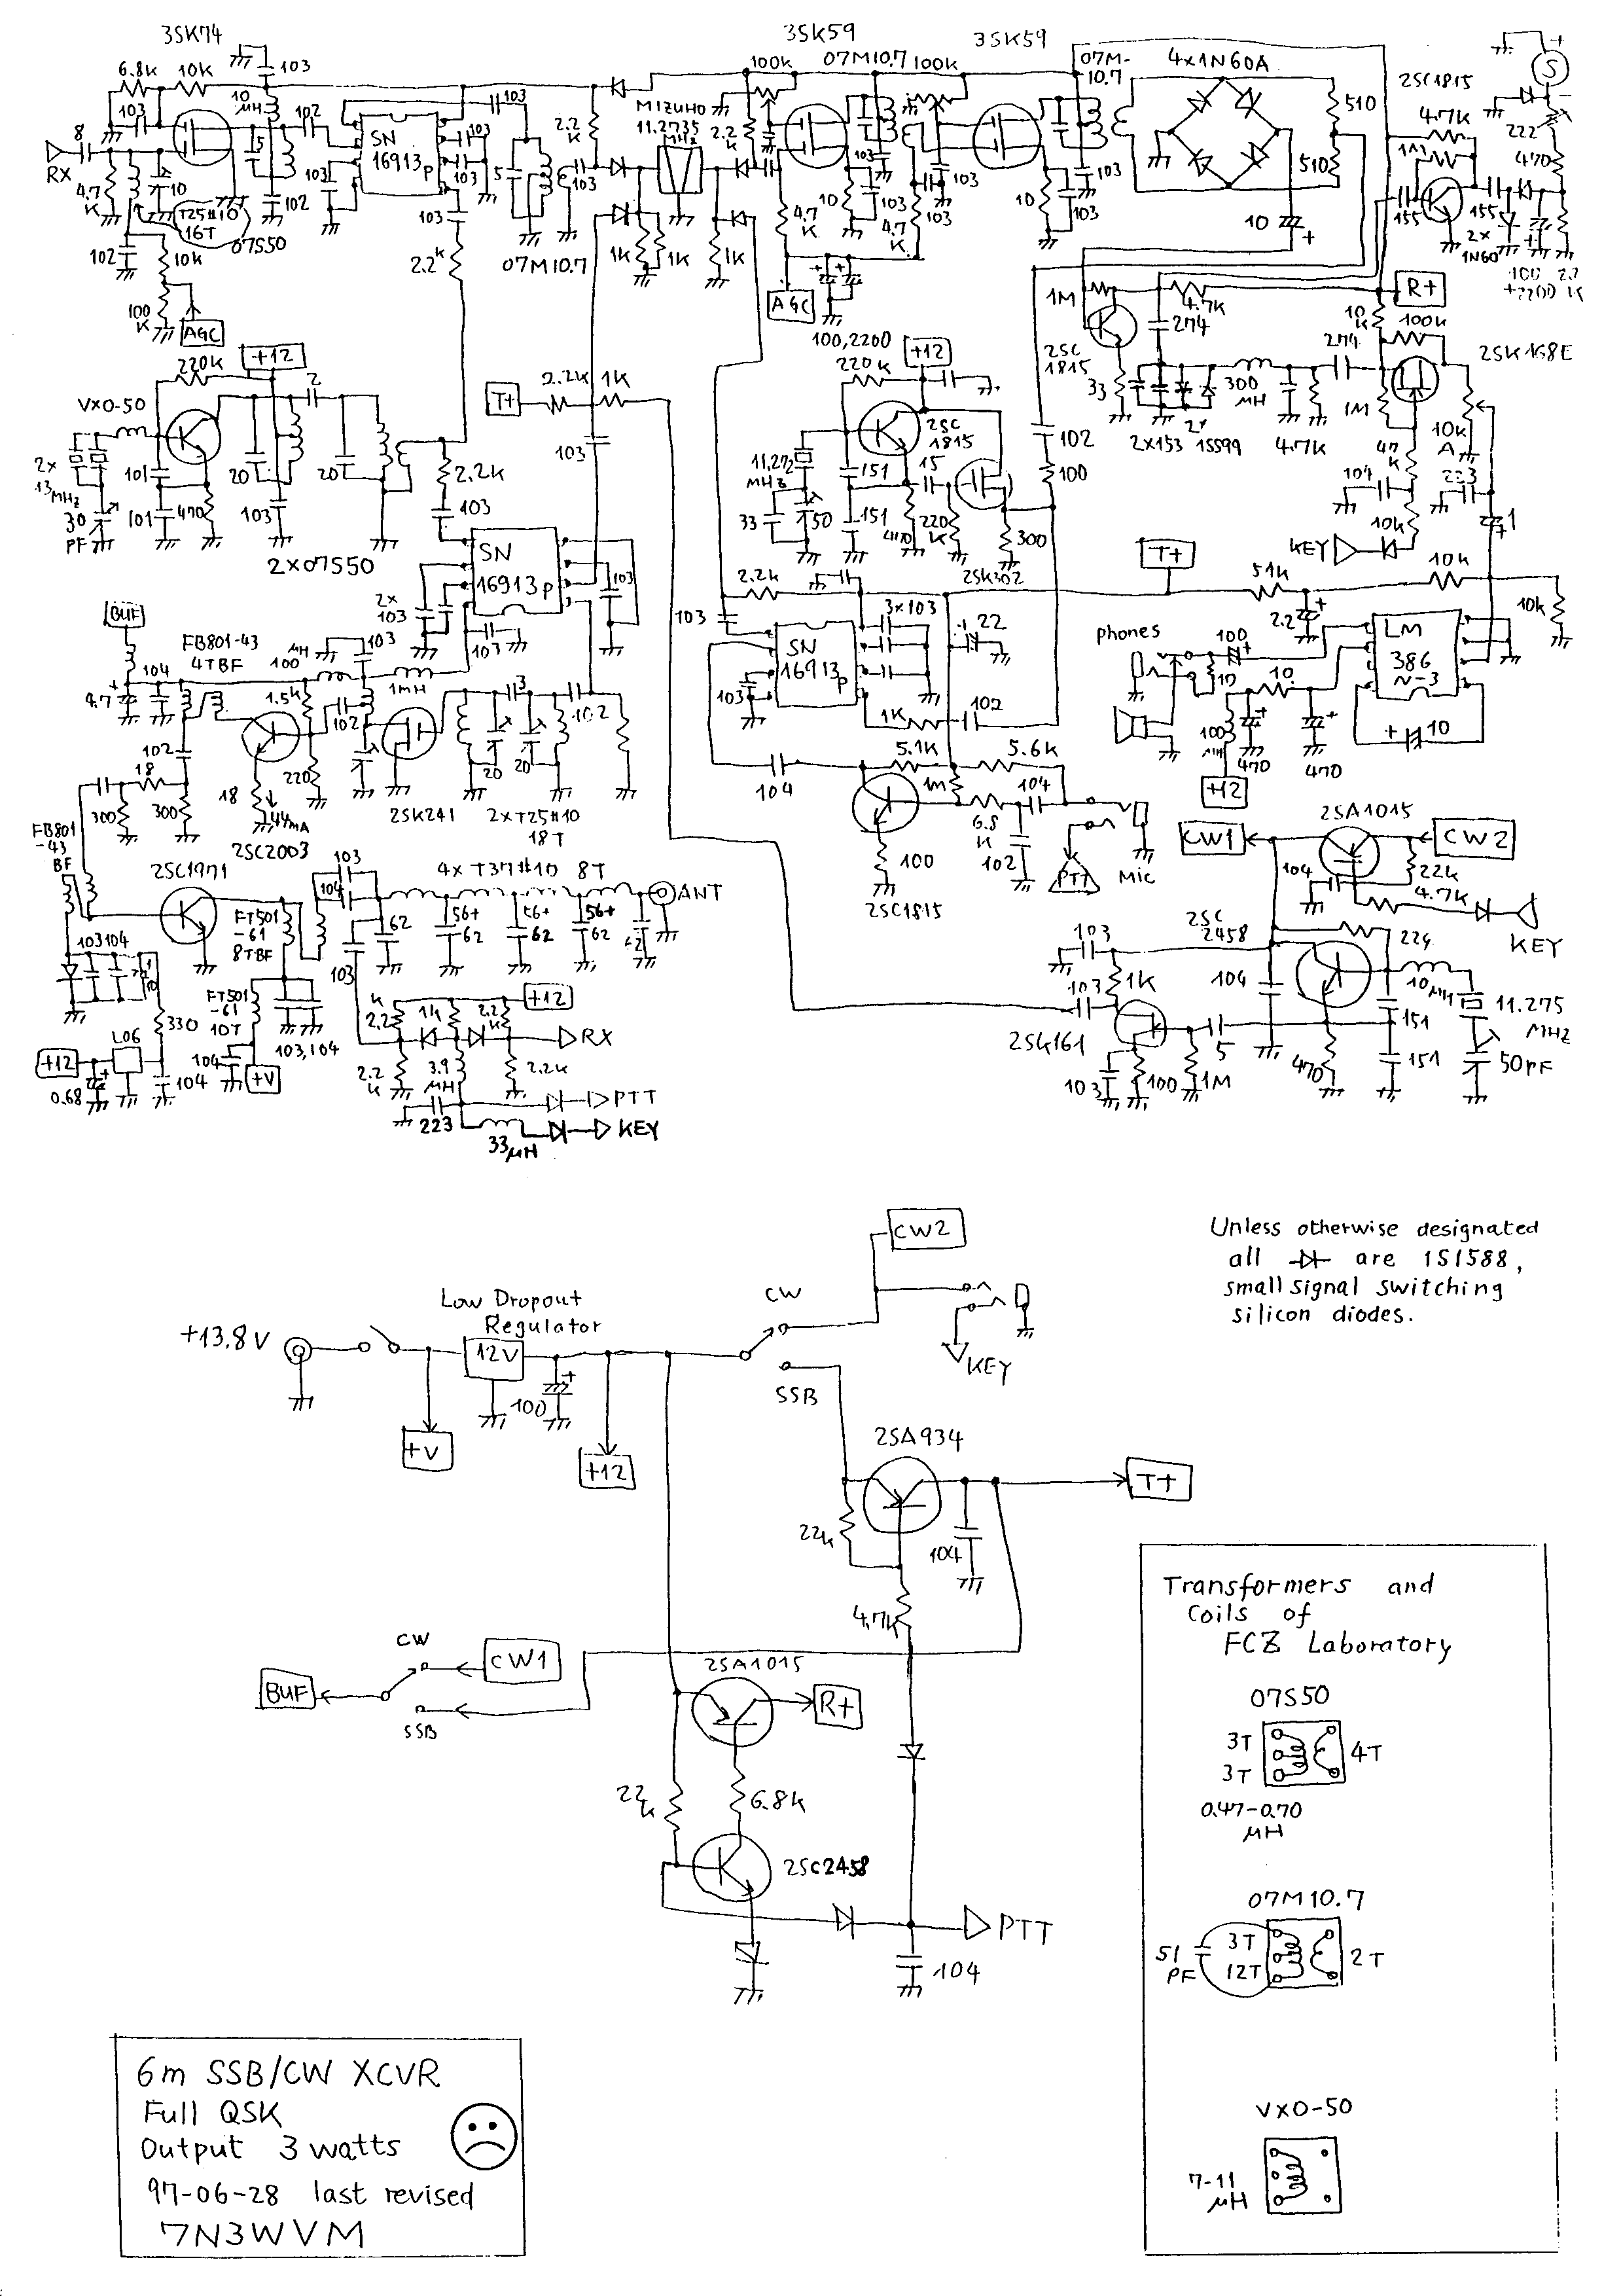 3SK74
3SK59
3SK59
07M10.7
100K
100K
07M-
10.7
4x1N60A
2SC1815
S
6.8K
10K
103
10
μH
102
103
103
103
8
RX
4.7
K
10
T25#10
16T
07S50
5
102
SN
16913P
103
103
5
103
07M10.7
2.2
K
MIZUHO
11.2735
MHz
2.2
K
1K
1K
1K
4.7
K
10
103
103
4.7
K
103
103
10
103
103
510
510
10
4.7K
1M
155
155
2x
1N60
222
470
100
+2200
2.2
K
102
10K
100
K
AGC
103
2.2K
AGC
100,2200
1M
2SC
1815
33
4.7K
274
2x153
1S599
300
μH
4.7K
274
R+
10
K
100K
2SK168E
1M
47
K
10K
A
104
223
10K
KEY
1
220K
+12
2
VXO-50
2x
13MHz
30
PF
101
101
470
20
103
20
2x07S50
T+
2.2K
1K
103
2.2K
103
220K
+12
2SC
1815
11.272
MHz
33
50
151
151
15
470
220
K
300
2SK302
102
100
SN
16913P
2x
103
103
103
T+
51K
10K
10K
2.2
2.2K
103
3x103
22
SN
16913P
103
1K
102
phones
100
10
10
100
μH
470
470
+12
LM
386
N-3
10
BUF
FB801-43
4TBF
100
μH
103
4.7
104
1.5K
102
1mH
3
102
102
18
300
300
18
44mA
220
2SC2003
2SK241
20
20
2xT25#10
18T
104
5.1K
5.6K
1M
104
6.8
K
102
100
2SC1815
PTT
Mic
2SA1015
CW1
CW2
104
22K
4.7K
KEY
FB801
-43
BF
2SC1971
103
104
4x T37#10 8T
ANT
62
56+
62
56+
62
56+
62
62
FT501
-61
8TBF
103
103 104
FT501
-61
10T
103,104
330
L06
+12
0.68
104
104
+V
K
2.2
1K
2.2
K
+12
RX
2.2
K
3.9
μH
2.2K
PTT
223
33μH
KEY
2SC
2458
224
103
103
1K
104
10μH
11.275
MHz
151
151
50PF
2SK161
103
100
1M
5
470
CW2
Unless otherwise designated
all are 1S1588,
small signal switching
silicon diodes.
+13.8V
Low Dropout
Regulator
12V
100
+V
+12
CW
SSB
KEY
2SA934
22K
104
4.7K
T+
CW
CW1
BUF
SSB
2SA1015
R+
22
K
6.8K
2SC2458
PTT
104
Transformers and
Coils of
FCZ Laboratory
07S50
3T
3T
4T
0.47-0.70
μH
07M10.7
51
PF
3T
12T
2T
VXO-50
7-11
μH
6m SSB/CW XCVR
Full QSK
Output 3 watts
97-06-28 last revised
7N3WVM